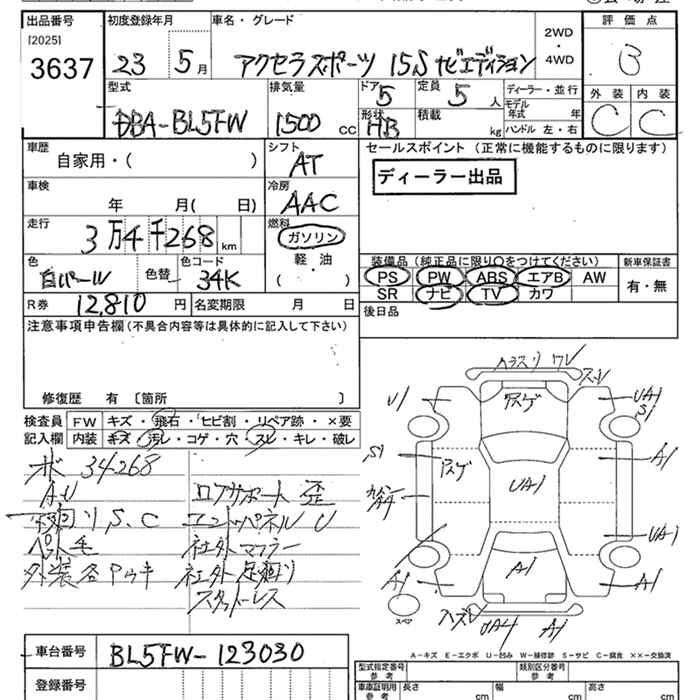 出品番号 初度登録年月 車名・グレード 2WD・4WD 評価点
[2025]
3637 23 5月 アクセラスポーツ 15S ナビエディション B
型式 排気量 ドア 定員 ディーラー・並行 外装 内装
DBA-BL5FW 1500 cc 5 5 人 モデル年式 年 C C
形状 積載
HB kg ハンドル 左・右
車歴 シフト セールスポイント (正常に機能するものに限ります)
自家用・( ) AT ディーラー出品
車検 冷房
年 月( 日) AAC
走行 燃料
3万4千268 km ガソリン
色 色替 色コード 軽・油
白パール 34K ( )
装備品 (純正品に限り○をつけてください) 新車保証書
PS PW ABS エアB AW 有・無
SR ナビ TV カワ
R券 12,810 円 名変期限 月 日 後日品
注意事項申告欄 (不具合内容等は具体的に記入して下さい)
修復歴 有 〔箇所 〕
検査員 FW キズ・飛石・ヒビ割・リペア跡・×要
記入欄 内装 キズ・汚レ・コゲ・穴・スレ・キレ・破レ
34268
A.U ロアサポート 歪
リS.C エンドパネル U
ペット毛 社外マフラー
外装各アUキ 社外足廻り
スタットレス
ガラスリ ワレ
スレ
U1 ススゲ UA1
S1
S1 ススゲ A1
UA1
UA1
A1 A1 A1
スペア
ハズレ UA4 A1
A-キズ E-エクボ U-凹み W-補修跡 S-サビ C-腐食 ××-交換済
車台番号 BL5FW-123030 型式指定番号 参考 類別区分番号 参考
登録番号 車庫証明用 参考 長さ cm 幅 cm 高さ cm